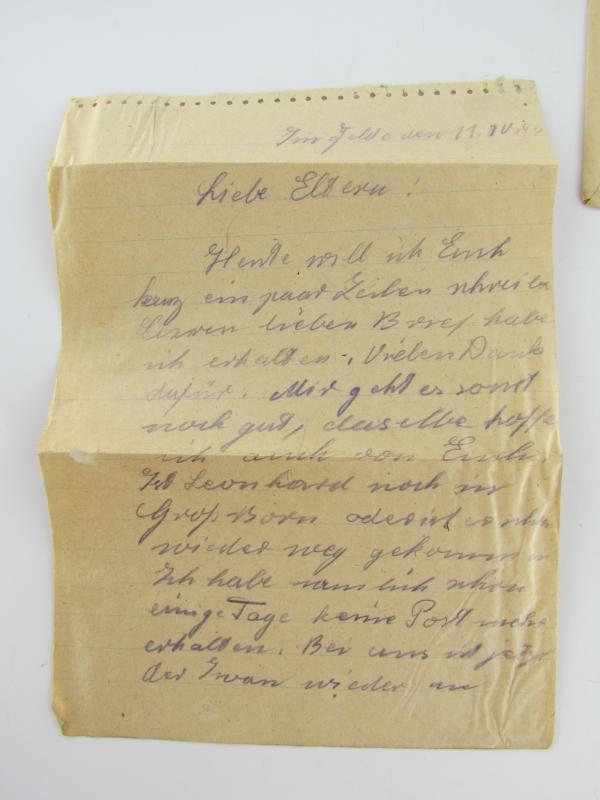 Im Felde den 11. IV. 44
Liebe Eltern!
Heute will ich Euch
kurz ein paar Zeilen schreiben
Euren lieben Brief habe
ich erhalten. Vielen Dank
dafür. Mir geht es sonst
noch gut, dasselbe hoffe
ich auch von Euch.
Ist Leonhard noch in
Groß Born oder ist er schon
wieder weg gekommen
Ich habe nämlich schon
einige Tage keine Post mehr
erhalten. Bei uns ist jetzt
der Iwan wieder am